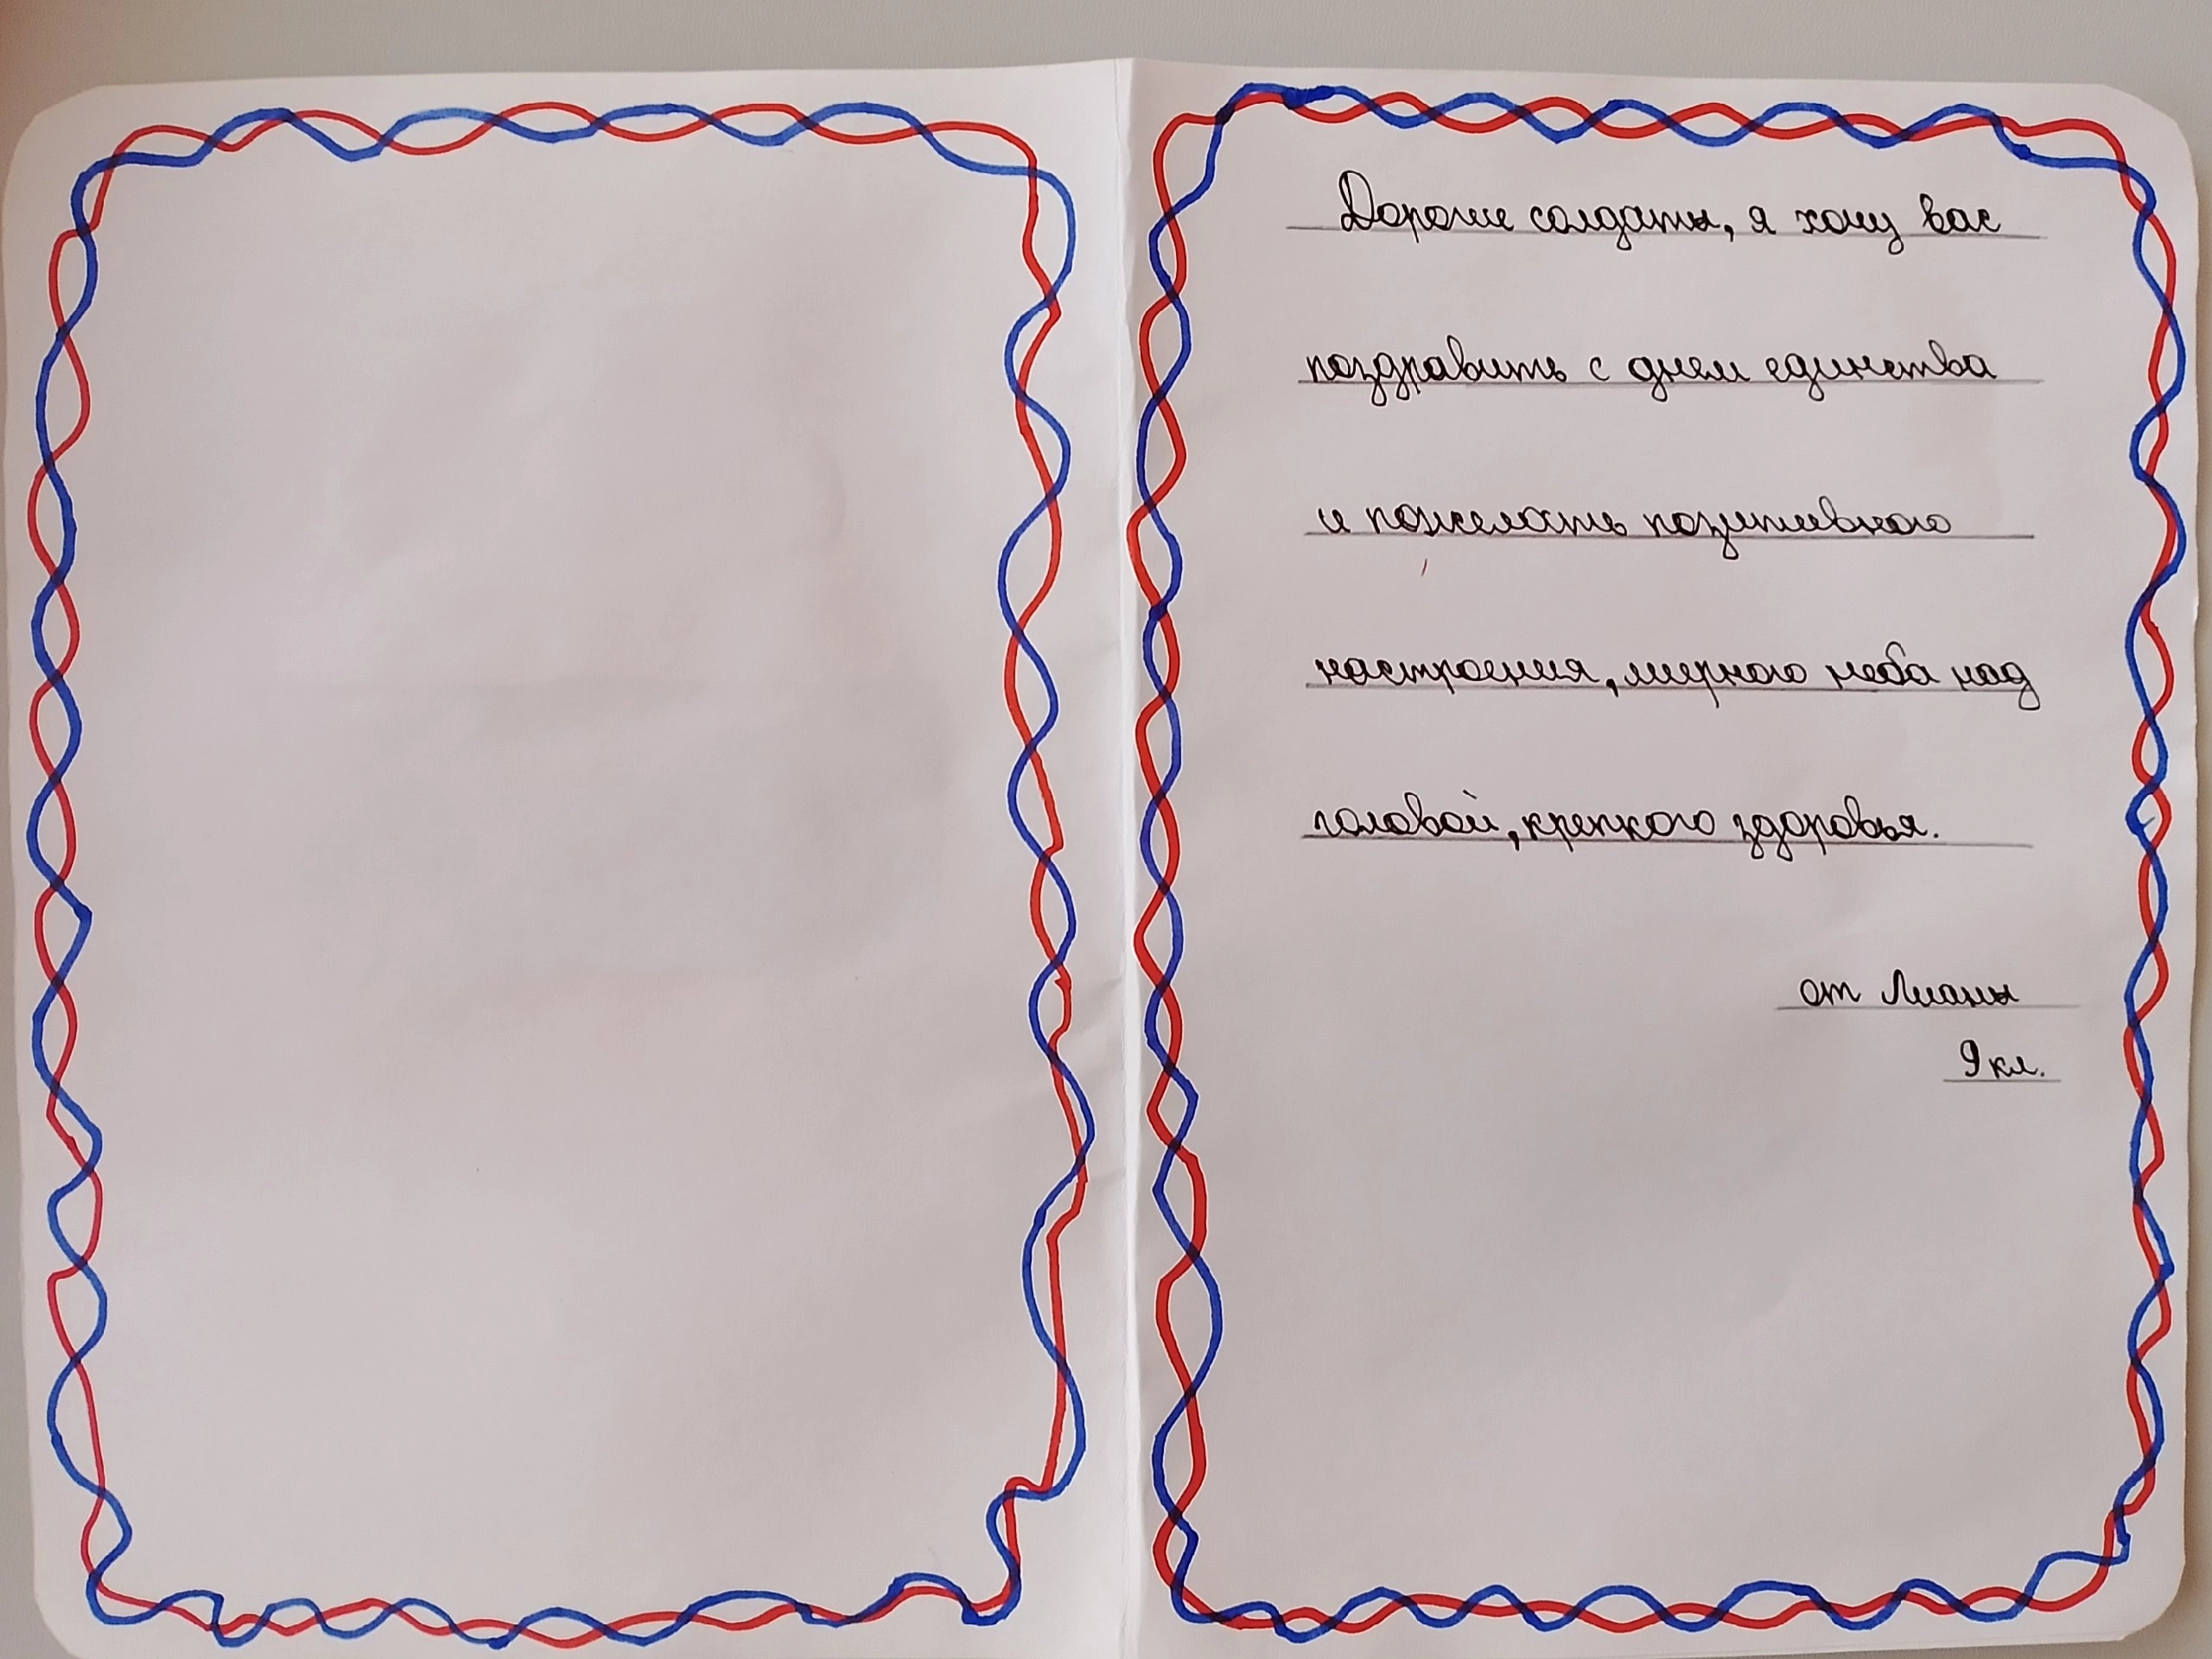 Дорогие солдаты, я хочу вас
поздравить с днем единства
и пожелать позитивного
настроения, мирного неба над
головой, крепкого здоровья.
от Лианы
9 кл.